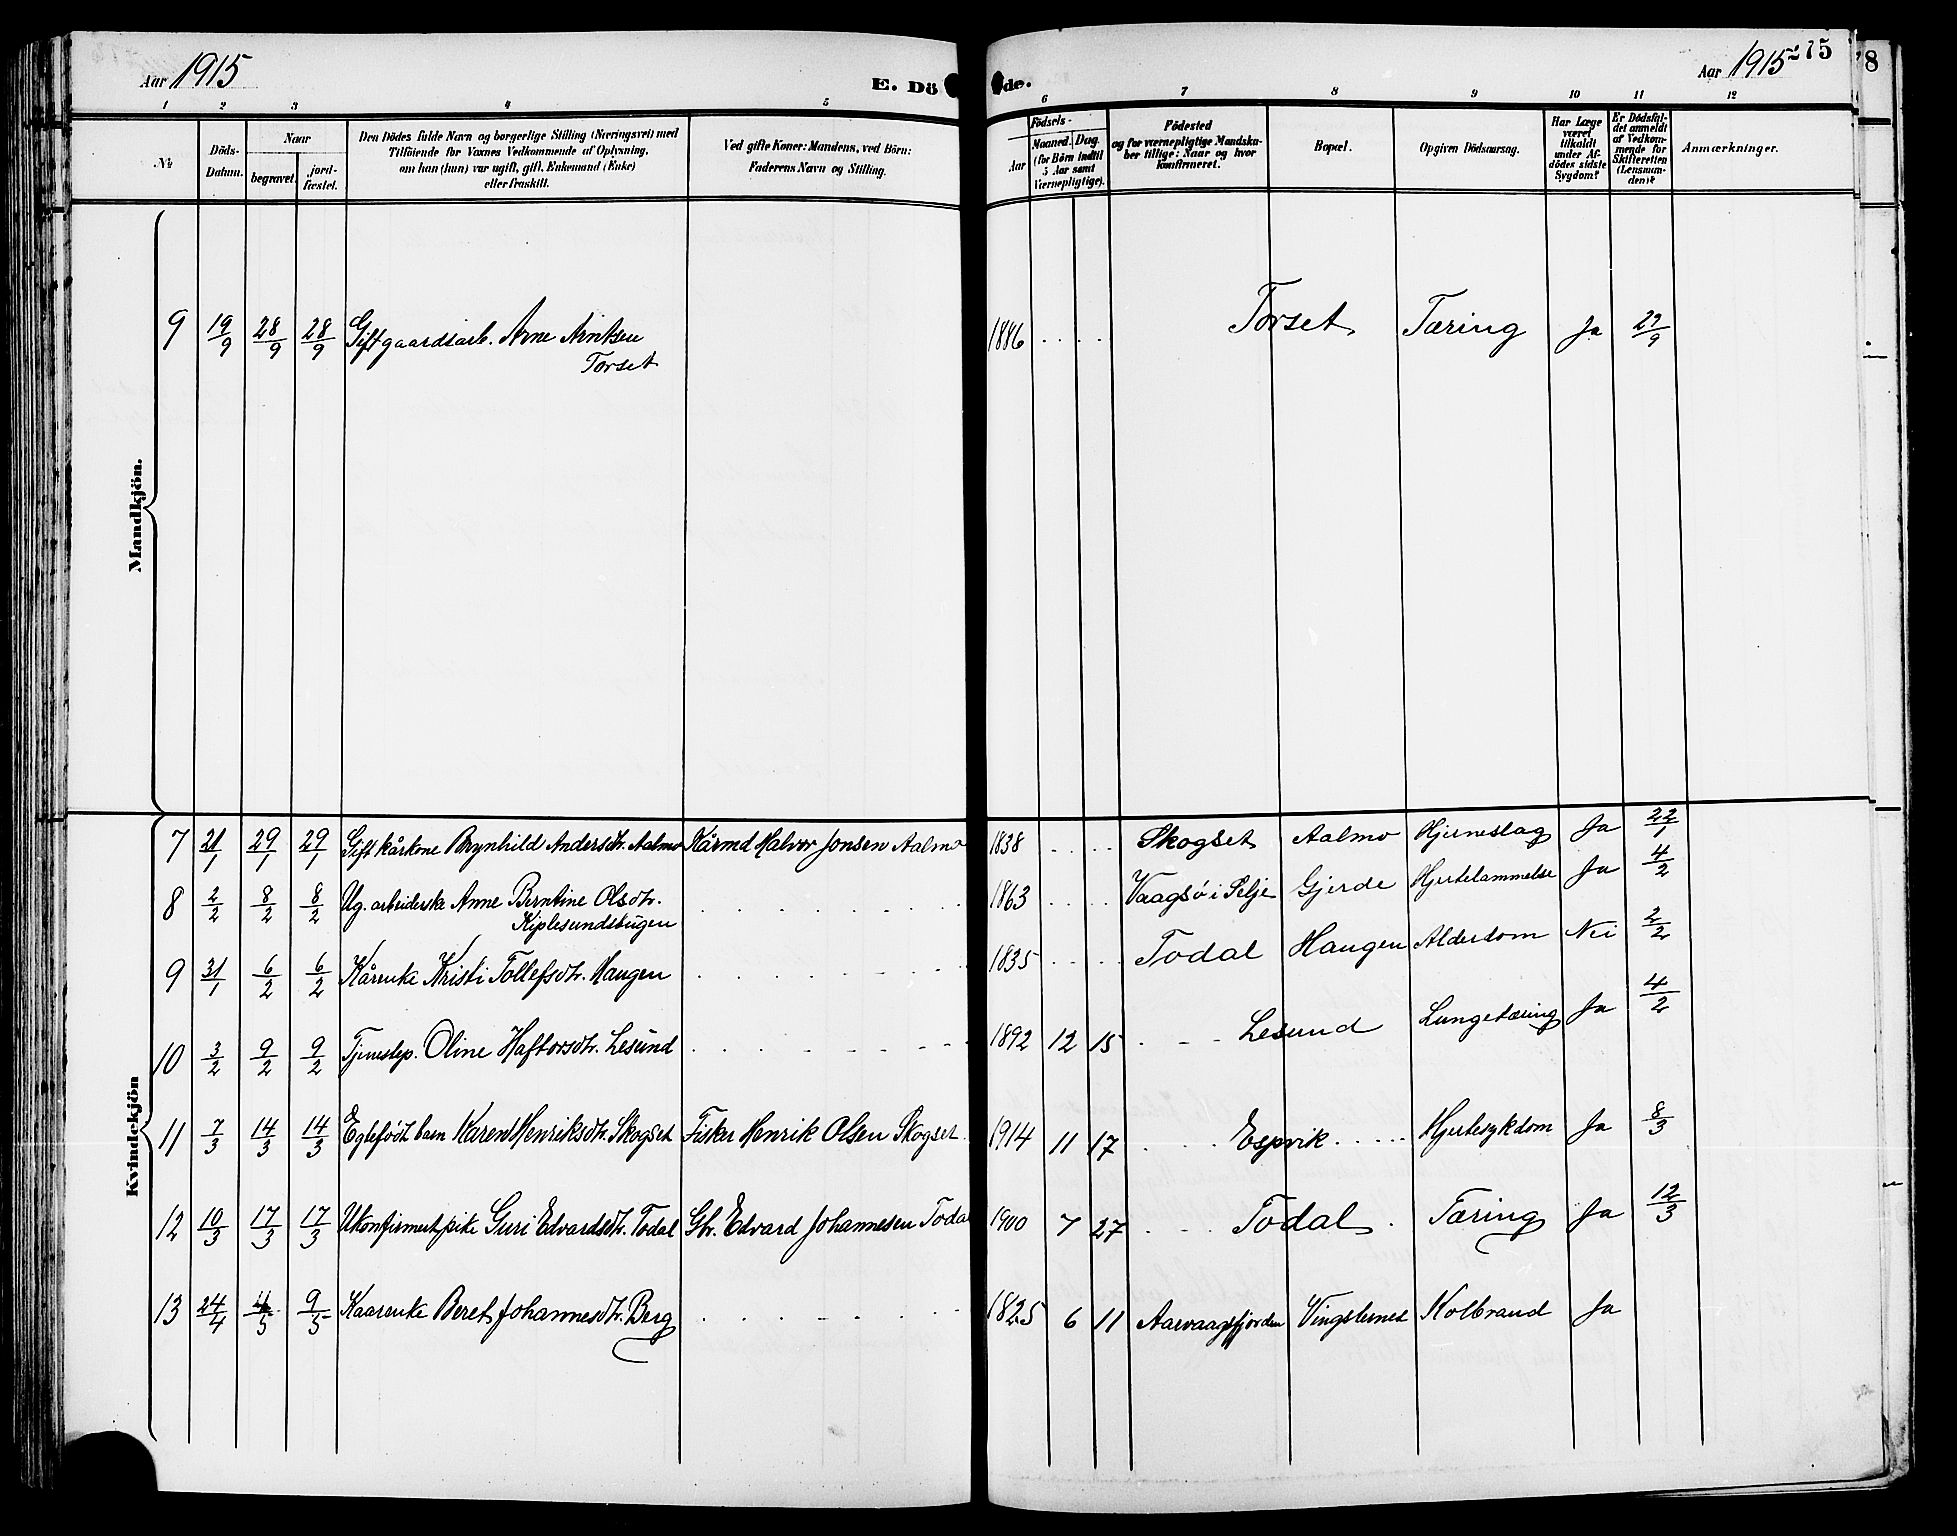 Aar 1915
E. Döde.
Aar 1915
275
8
1 2 3 4 5 6 7 8 9 10 11 12
№
Döds-Datum.
Naar
begravet.
jord-fæstet.
Den Dödes fulde Navn og borgerlige Stilling (Næringsvei) med
Tilföiende for Voxnes Vedkommende af Oplysning,
om han (hun) var ugift, gift, Enkemand (Enke)
eller fraskilt.
Ved gifte Koner: Mandens, ved Börn:
Faderens Navn og Stilling.
Födsels-
Aar
Maaned. Dag.
(for Börn indtil
5 Aar samt
Værnepligtige).
Födested
og for værnepligtige Mandska-
ber tillige: Naar og hvor
konfirmeret.
Bopæl.
Opgiven Dödsaarsag.
Har Læge
været
tilkaldt
under Af-
dödes sidste
Sygdom?
Er Dödsfal-
det anmeldt
af Vedkom-
mende for
Skifteretten
(Lensman-
den)?
Anmærkninger.
Mandkjön.
9 19/9 28/9 28/9 Gift gaardsarb. Arne Arntsen 1886 . . . . Torset Tæring Ja 22/9
Torset
Kvindekjön
7 21/1 29/1 29/1 Gift kårkone Brynhild Andersdtr. Aalmo Kårmd Halvor Jonsen Aalmo 1838 . . . . Skogset Aalmo Hjerneslag Ja 22/1
8 2/2 8/2 8/2 Ug. arbeiderske Anne Berntine Olsdtr. 1863 . . . . Vaagsö i Selje Gjerde Hjertelammelse Ja 4/2
Kiplesundsbugen
9 31/1 6/2 6/2 Kårenke Kristi Tollefsdtr. Haugen 1835 . . . . Todal Haugen Alderdom Nei 2/2
10 3/2 9/2 9/2 Tjenestep. Oline Haftorsdtr. Lesund 1892 12 15 Lesund Lungetæring Ja 4/2
11 7/3 14/3 14/3 Egtefödt barn Karen Henriksdtr. Skogset Fisker Henrik Olsen Skogset 1914 11 17 Espvik Hjertesykdom Ja 8/3
12 10/3 17/3 17/3 Ukonfirmert pike Guri Edvardsdtr. Todal Gbr. Edvard Johannesen Todal 1900 7 27 Todal Tæring Ja 12/3
13 24/4 4/5 9/5 Kaarenke Beret Johannesdtr. Berg 1825 6 11 Aarvaagsfjorden Vingsternes Kolbrand Ja